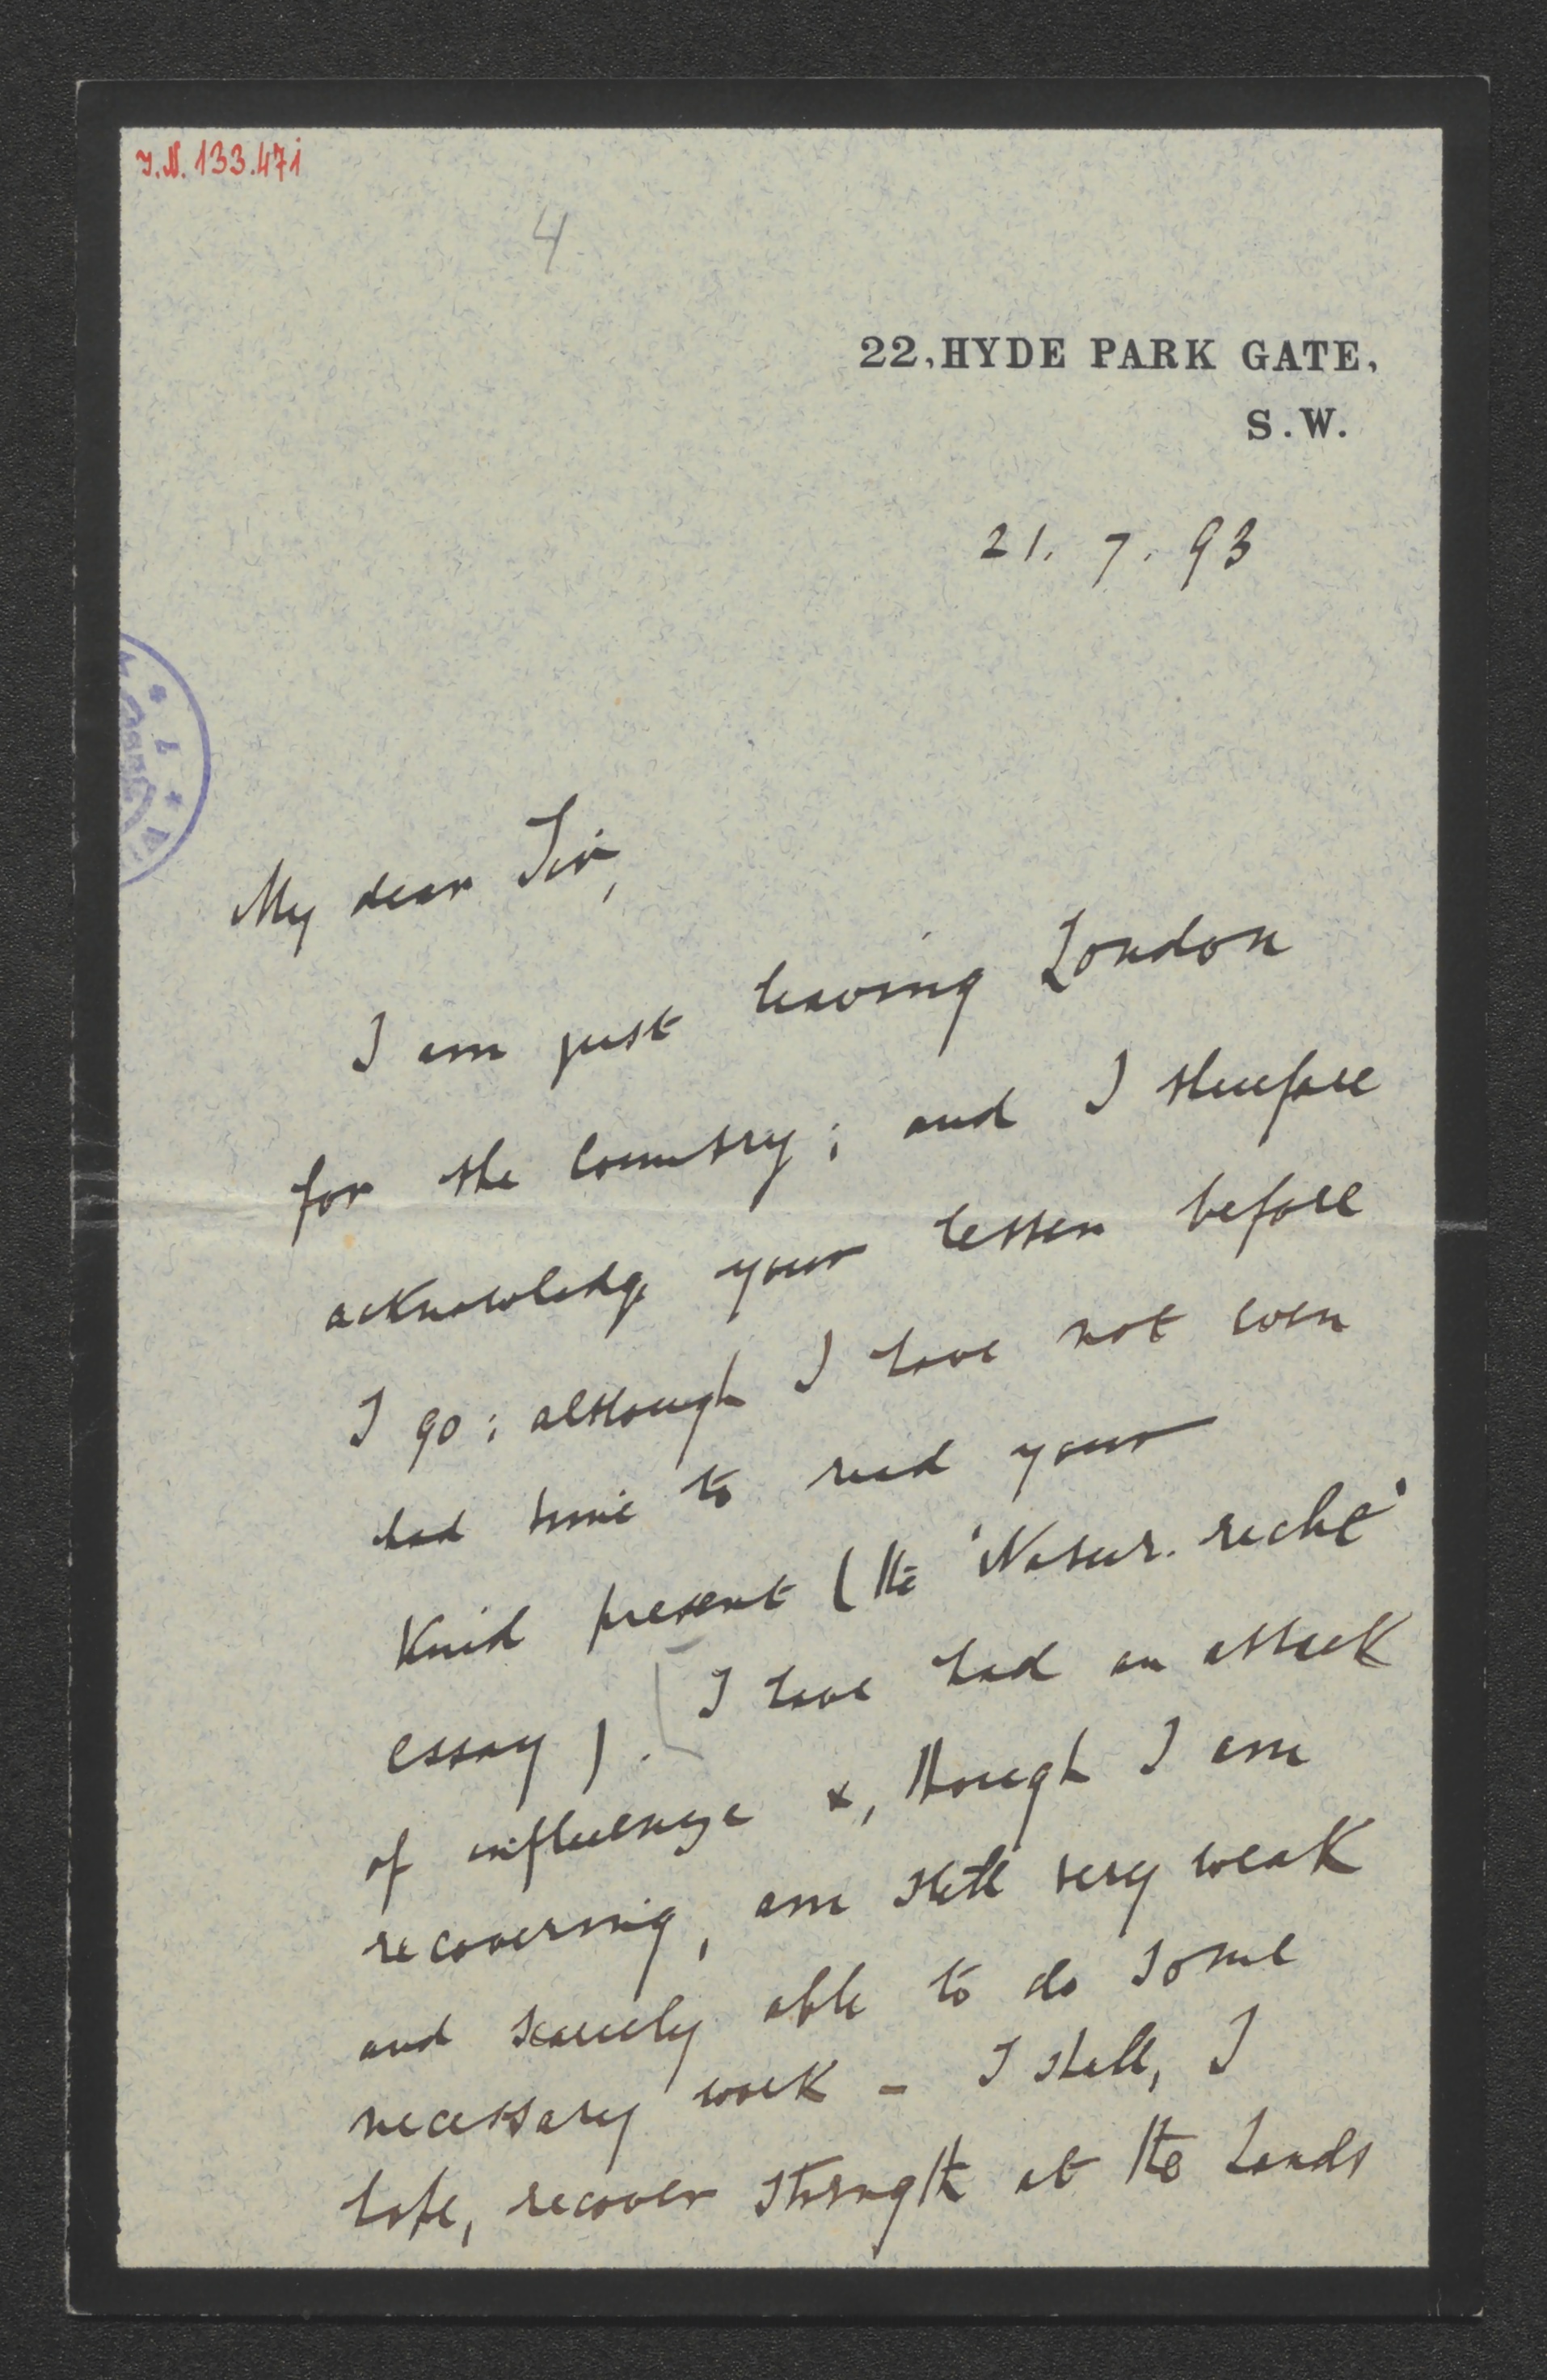 J.N. 133.471
4
22, HYDE PARK GATE,
S.W.
21. 7. 93
My dear Sir,
I am just leaving London
for the country; and I therefore
acknowledge your letter before
I go; although I have not even
had time to read your
kind present (the 'Natur. recht'
essay). I have had an attack
of influenza &, though I am
recovering, am still very weak
and scarcely able to do some
necessary work – I shall, I
hope, recover strength at the Lands